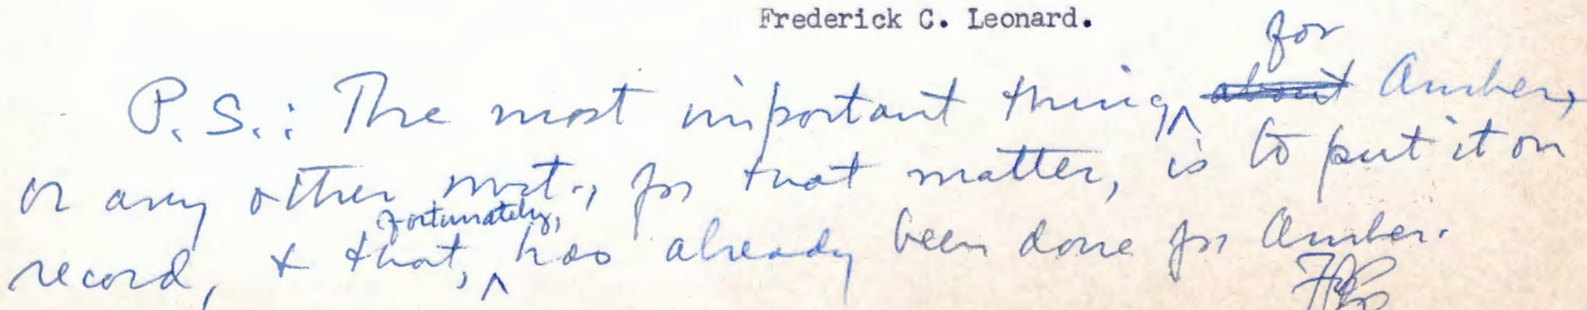 Frederick C. Leonard.
P.S.: The most important thing for Amber,
or any other mst., for that matter, is to put it on
record, & that, fortunately, has already been done for Amber.